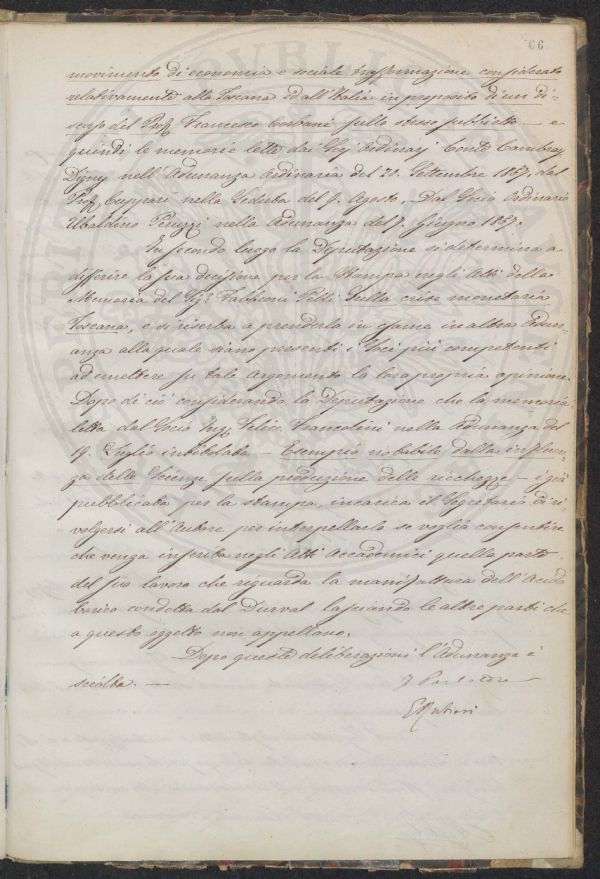 66
movimento di economia e sociale trasformazione considerato
relativamente alla Toscana ed all'Italia in proposito di un di-
scorso del Prof. Francesco Corbani sullo stesso subbietto — e
quindi le memorie lette dai Sigj. Ordinarj Conte Cambray
Digny nell'Adunanza Ordinaria del 21. Settembre 1867, dal
Prof. Cuppari nella Seduta del 4. Agosto, Dal Socio Ordinario
Ubaldino Peruzzi nella Adunanza del 7. Giugno 1867.
In secondo luogo la Deputazione si determina a
differire la sua decisione per la Stampa negli Atti della
Memoria del Sig.r Fabbroni Pelli Sulla crise monetaria
Toscana, e si riserba a prenderla in esame in altra Adun-
anza alla quale siano presenti i Soci più competenti
ad emettere su tale Argomento la loro propria opinione.
Dopo di ciò considerando la Deputazione che la memoria
letta dal Socio Ing. Felice Francolini nella Adunanza del
Luglio intitolata — Esempio notabile della influen-
za delle Scienze sulla produzione delle ricchezze — è già
pubblicata per la stampa, incarica il Segretario di ri-
volgersi all'Autore per interpellarlo se voglia consentire
che venga inserita negli Atti Accademici quella parte
del suo lavoro che riguarda la manifattura dell'Acido
borico condotta dal Durval lasciando le altre parti che
a questo oggetto non appellano.
Dopo queste deliberazioni l'Adunanza è
sciolta. —
E. Rubieri